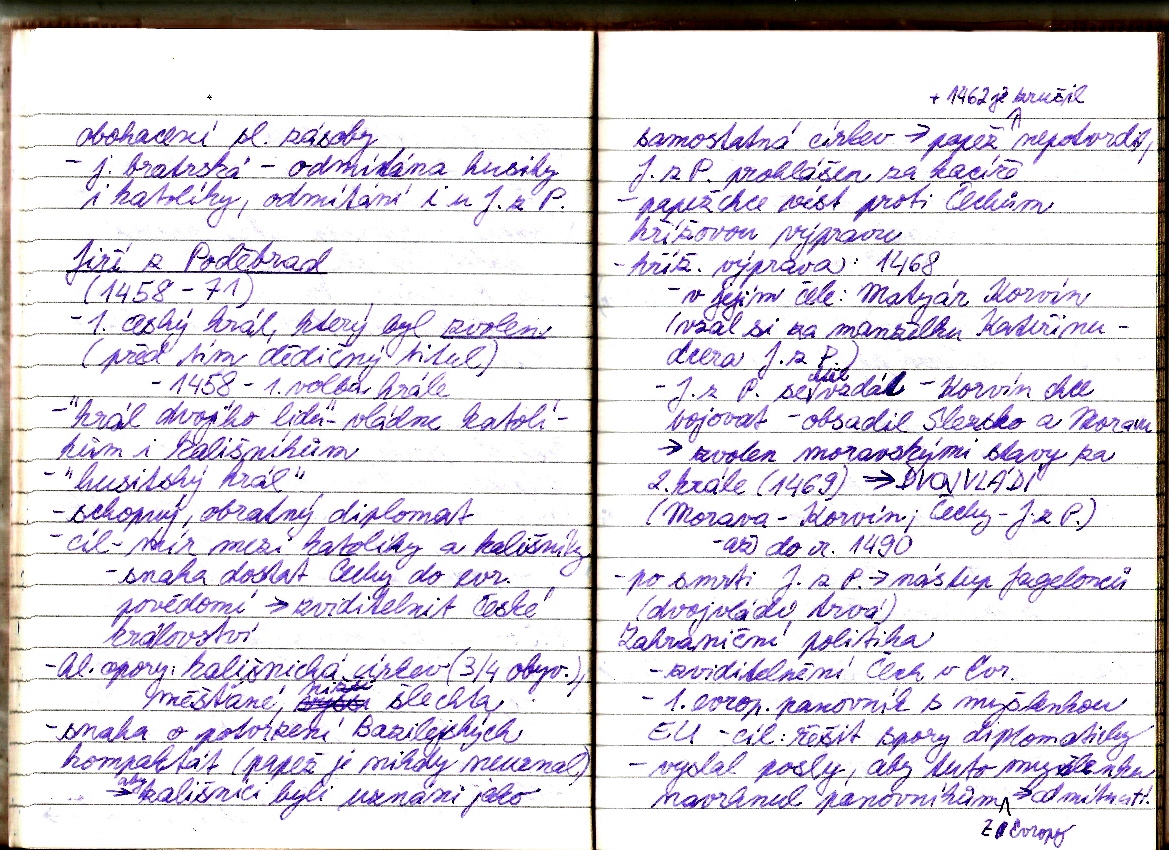 obohacení sl. zásoby
- j. bratrská - odmítána husity
i katolíky, odmítání i u J. z P.
Jiří z Poděbrad
(1458 - 71)
- 1. český král, který byl zvolen
(před tím dědičný titul)
- 1458 - 1. volba krále
- "král dvojího lidu" - vládne katolí-
kům i kališníkům
- "husitský král"
- schopný, obratný diplomat
- cíl - mír mezi katolíky a kališníky
- snaha dostat Čechy do evr.
povědomí → zviditelnit České
království
- hl. opory: kališnická církev (3/4 obyv.),
měšťané, nižší šlechta
- snaha o potvrzení Basilejských
kompaktát (papež je nikdy neuznal)
→ aby kališníci byli uznáni jako
+ 1462 je zrušil
samostatná církev → papež nepotvrdil,
J. z P. prohlášen za kacíře
- papež chce vést proti Čechům
křížovou výpravu
- kříž. výprava: 1468
- v jejím čele: Matyáš Korvín
(vzal si za manželku Kateřinu -
dcera J. z P.)
- J. z P. se vzdal - Korvín chce
vojovat - obsadil Slezsko a Moravu
→ zvolen moravskými stavy za
2. krále (1469) → DVOJVLÁDÍ
(Morava - Korvín; Čechy - J. z P.)
- až do r. 1490
- po smrti J. z P. → nástup Jagelonců
(dvojvládí trvá)
Zahraniční politika
- zviditelnění Čech v Evr.
- 1. evrop. panovník s myšlenkou
EU - cíl: řešit spory diplomaticky
- vyslal posly, aby tuto myšlenku
navrhnul panovníkům z Evropy → odmítnutí.